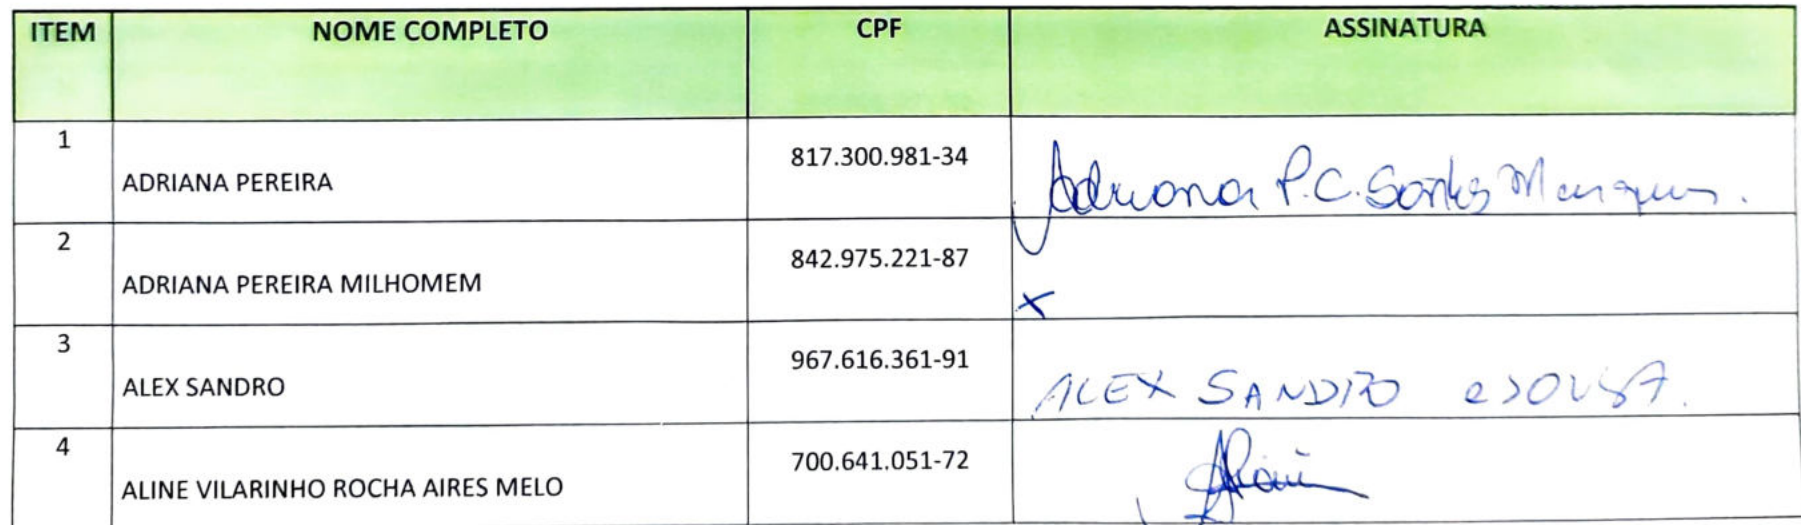 ITEM NOME COMPLETO CPF ASSINATURA
1 ADRIANA PEREIRA 817.300.981-34 Adriana P.C. Santos Marques.
2 ADRIANA PEREIRA MILHOMEM 842.975.221-87 x
3 ALEX SANDRO 967.616.361-91 ALEX SANDRO SOUSA.
4 ALINE VILARINHO ROCHA AIRES MELO 700.641.051-72